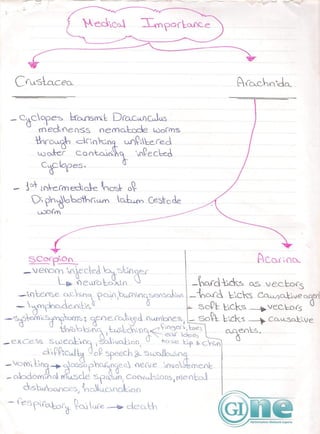 Medical Importance
Crustacea
Arachnida
- Cyclopes transmit Dracunculus
medinenss nematode worms
through drinking unfiltered
water containing infected
Cyclopes.
- 1st intermediate host of
Diphyllobothrium latum Cestode
worm
Scorpion
- venom injected by stinger
neurotoxin
- intense aching pain, burning sensation
- lymphadentis
- systemic symptoms; generalized numbness,
throbbing, twitching fingers, toes
ear lobes,
nose tip & chin
- excess sweating, salivation,
difficulty of speech & swallowing
- vomiting glossopharyngeal nerve involvement
- abdominal muscle spasm, convulsions, mental
disturbances, hallucination
- respiratory failure → death
Acarina
- hard ticks as vectors
- hard ticks causative agent
- soft ticks → vectors
- soft ticks → causative
agents.
GI ne